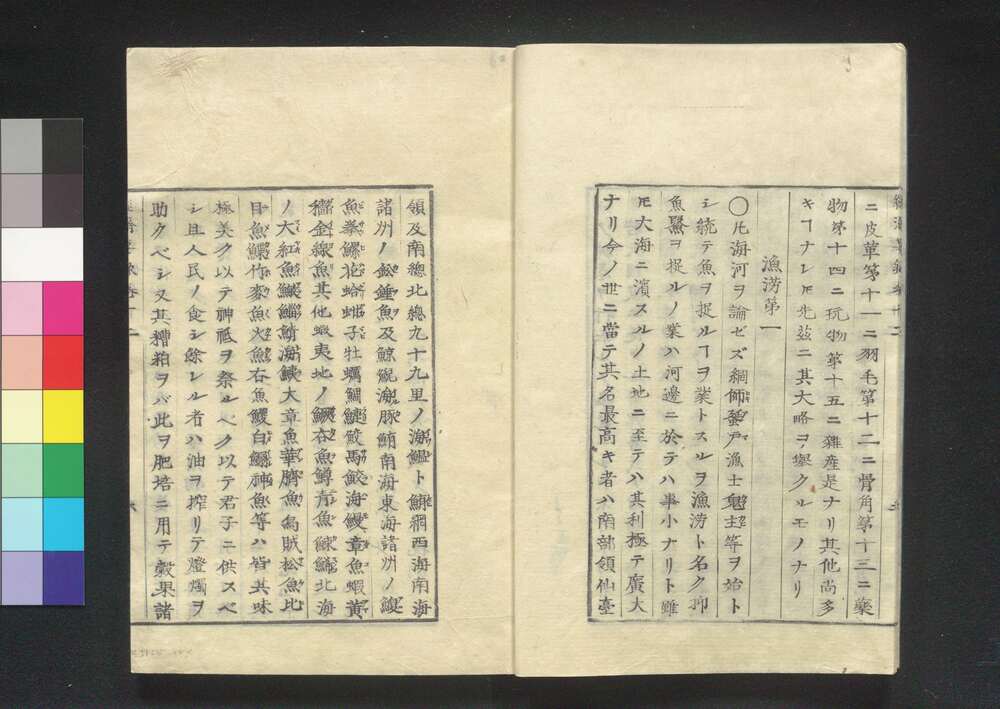 ニ皮革第十一ニ羽毛第十二ニ骨角第十三ニ藥
物第十四ニ玩物第十五ニ雜産是ナリ其他尚多
キヿナレ𪜈先茲ニ其大略ヲ擧クルモノナリ
漁澇第一
〇凡海河ヲ論ゼズ網師蜑戸漁士鬼主等ヲ始ト
シ統テ魚ヲ捉ルヿヲ業トスルヲ漁澇ト名ク抑
魚鼈ヲ捉ルノ業ハ河邊ニ於テハ事小ナリト雖
𪜈大海ニ濱スルノ土地ニ至テハ其利極テ廣大
ナリ今ノ世ニ當テ其名最高キ者ハ南部領仙臺
領及南總北總九十九里ノ海鰮ト網西海南海
諸州ノ錘魚及鯨鯢海豚鮪南海東海諸州ノ
魚拳螺花蛤子牡蠣鯛鮫馬鮫海鰻章魚蝦黄
穡金線魚其他蝦夷地ノ吞魚鱒青魚北海
ノ大紅魚鯖海大章魚華臍魚烏賊松魚比
目魚竹麥魚火魚石魚白神魚等ハ皆其味
極美ク以テ神祗ヲ祭ルベク以テ君子ニ供スベ
シ且人民ノ食シ餘レル者ハ油ヲ搾リテ燈燭ヲ
助クベシ又其糟粕ヲバ此ヲ肥培ニ用テ穀果諸